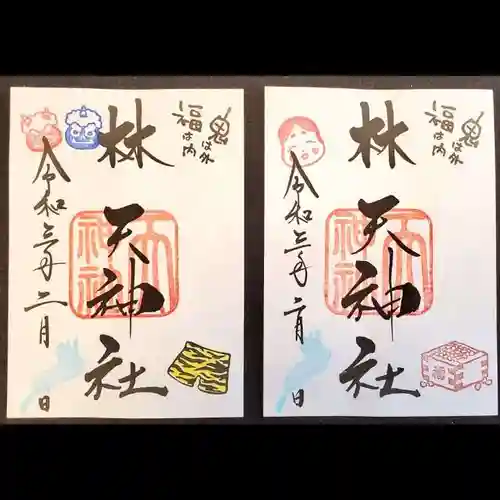 鬼は外
福は内
林天神社
天神社
令和三年二月
日
鬼は外
福は内
林天神社
天神社
令和三年二月
日
福